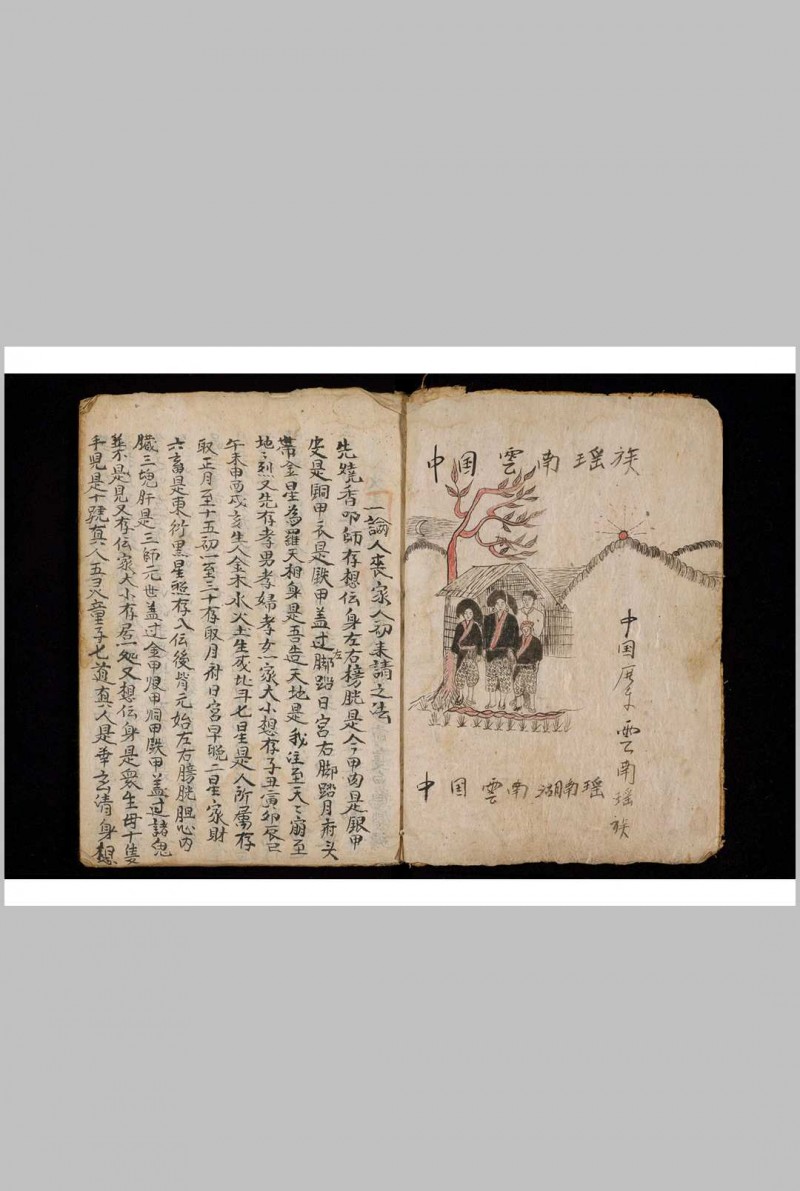 中国雲南瑶族
中国历⺹雲南瑶族
中国雲南湖南瑶
一論人喪家人初来請之法
先燒香叩師存想伝身左右膀胱是今甲肉是銀甲
皮是銅甲衣是鉄甲盖过左脚踏日宮右脚踏月府头
帶金星為羅天相身是吾造天地是我注至天〻崩至
地〻烈又先存孝男孝婦孝女一家大小想存子丑寅卯辰巳
午未申酉戌亥生人金木水火土生成北斗七星是人所屬存
取正月至十五初一至三十存取月府日宮早晚二星家財
六畜是東衍黑星照存入伝後背元始左右膀胱胆心内
臓三魂肝是三師元世盖过金甲銀甲銅甲鉄甲盖过諸鬼
並不是見又存伝家大小存居一処又想伝身是衆生母十隻
手児是十號真人五灵童子七道真人是奉玄清身想